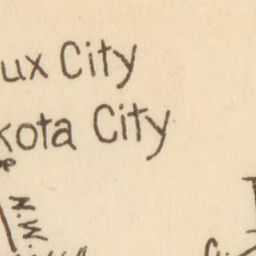 ux City
kota City
N.W.